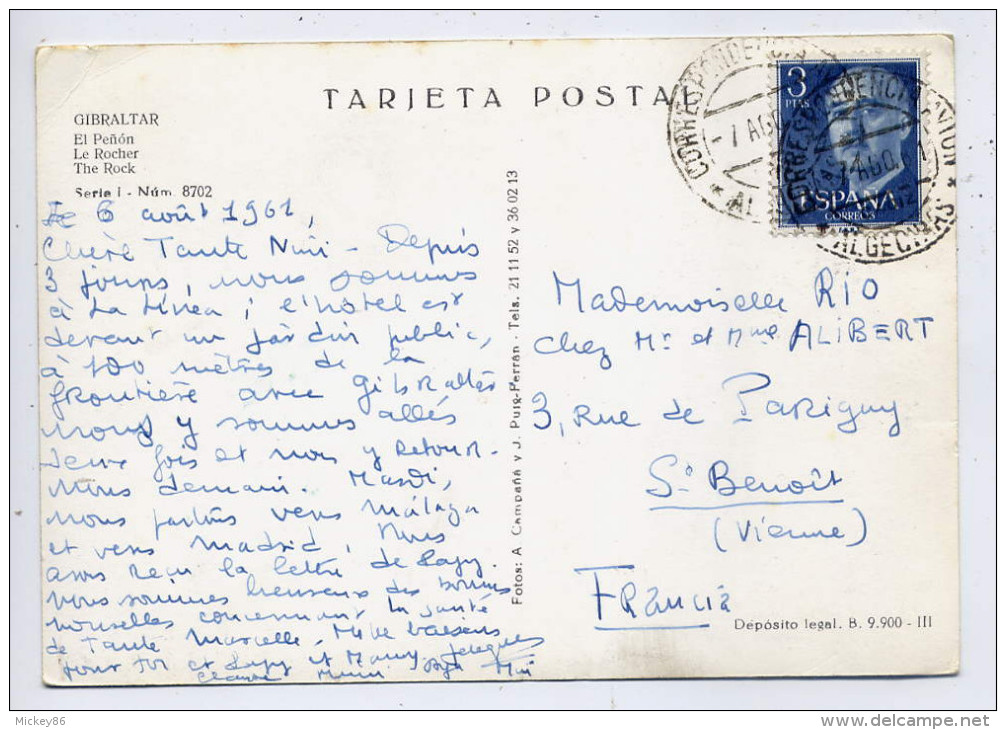 TARJETA POSTAL
GIBRALTAR
El Peñón
Le Rocher
The Rock
Serie I - Núm. 8702
Le 6 août 1961,
Chère Tante Nini - Depuis
3 jours, nous sommes
à La Linéa ; l'hôtel est
devant un jardin public,
à 100 mètres de la
frontière avec Gibraltar
Nous y sommes allés
deux fois et nous y retour-
nons demain. Mardi,
nous partons vers Málaga
et vers Madrid. Nous
avons reçu la lettre de
Nous sommes heureux des bonnes
nouvelles concernant la santé
de Tante Marcelle. Mille baisers
pour toi et et Mamy
Fotos: A. Campañá y J. Puig-Ferrán - Tels. 21 11 52 y 36 02 13
3
PTAS
ESPAÑA
CORREOS
CORRESPONDENCIA
7 AGO
CORRESPONDENCIA
7 AGO. 61
* ALGECIRAS *
Mademoiselle RIO
chez Mr et Mme ALIBERT
3, Rue de Parigny
St Benoît
(Vienne)
FRANCIA
Depósito legal. B. 9.900 - III
Mickey86